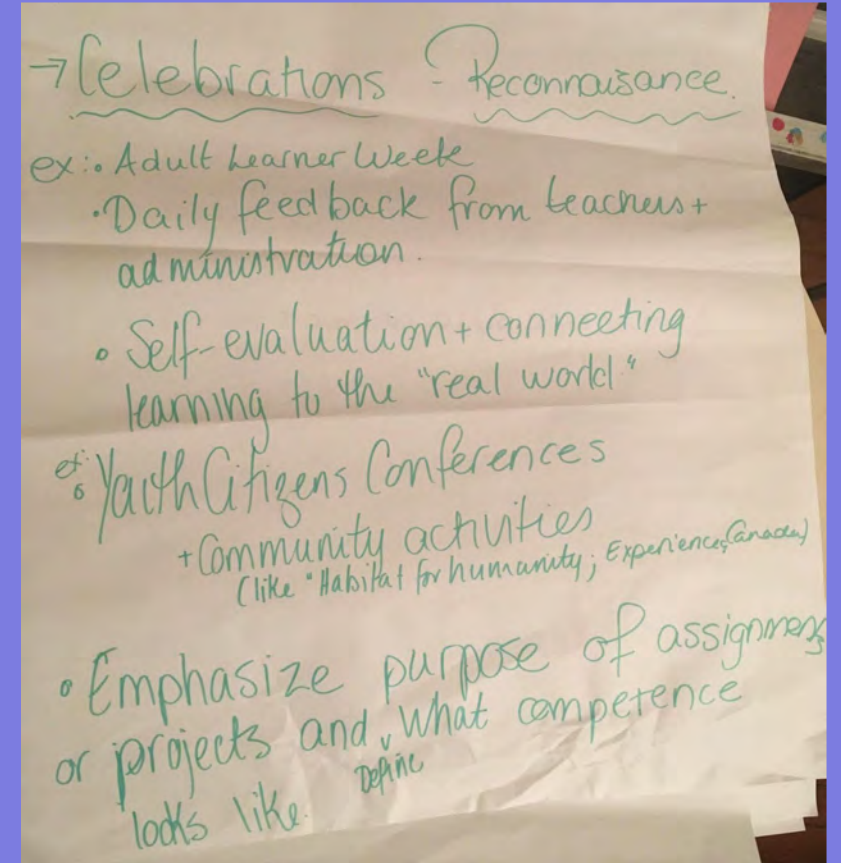 → Celebrations - Reconnaisance.
ex:• Adult Learner Week
•Daily feedback from teachers +
administration.
• Self-evaluation + connecting
learning to the "real world."
ex: • Youth Citizens Conferences
+ Community activities
(like "Habitat for humanity; Experiences Canada)
• Emphasize purpose of assignments
or projects and ˬ what competence
Define
looks like.